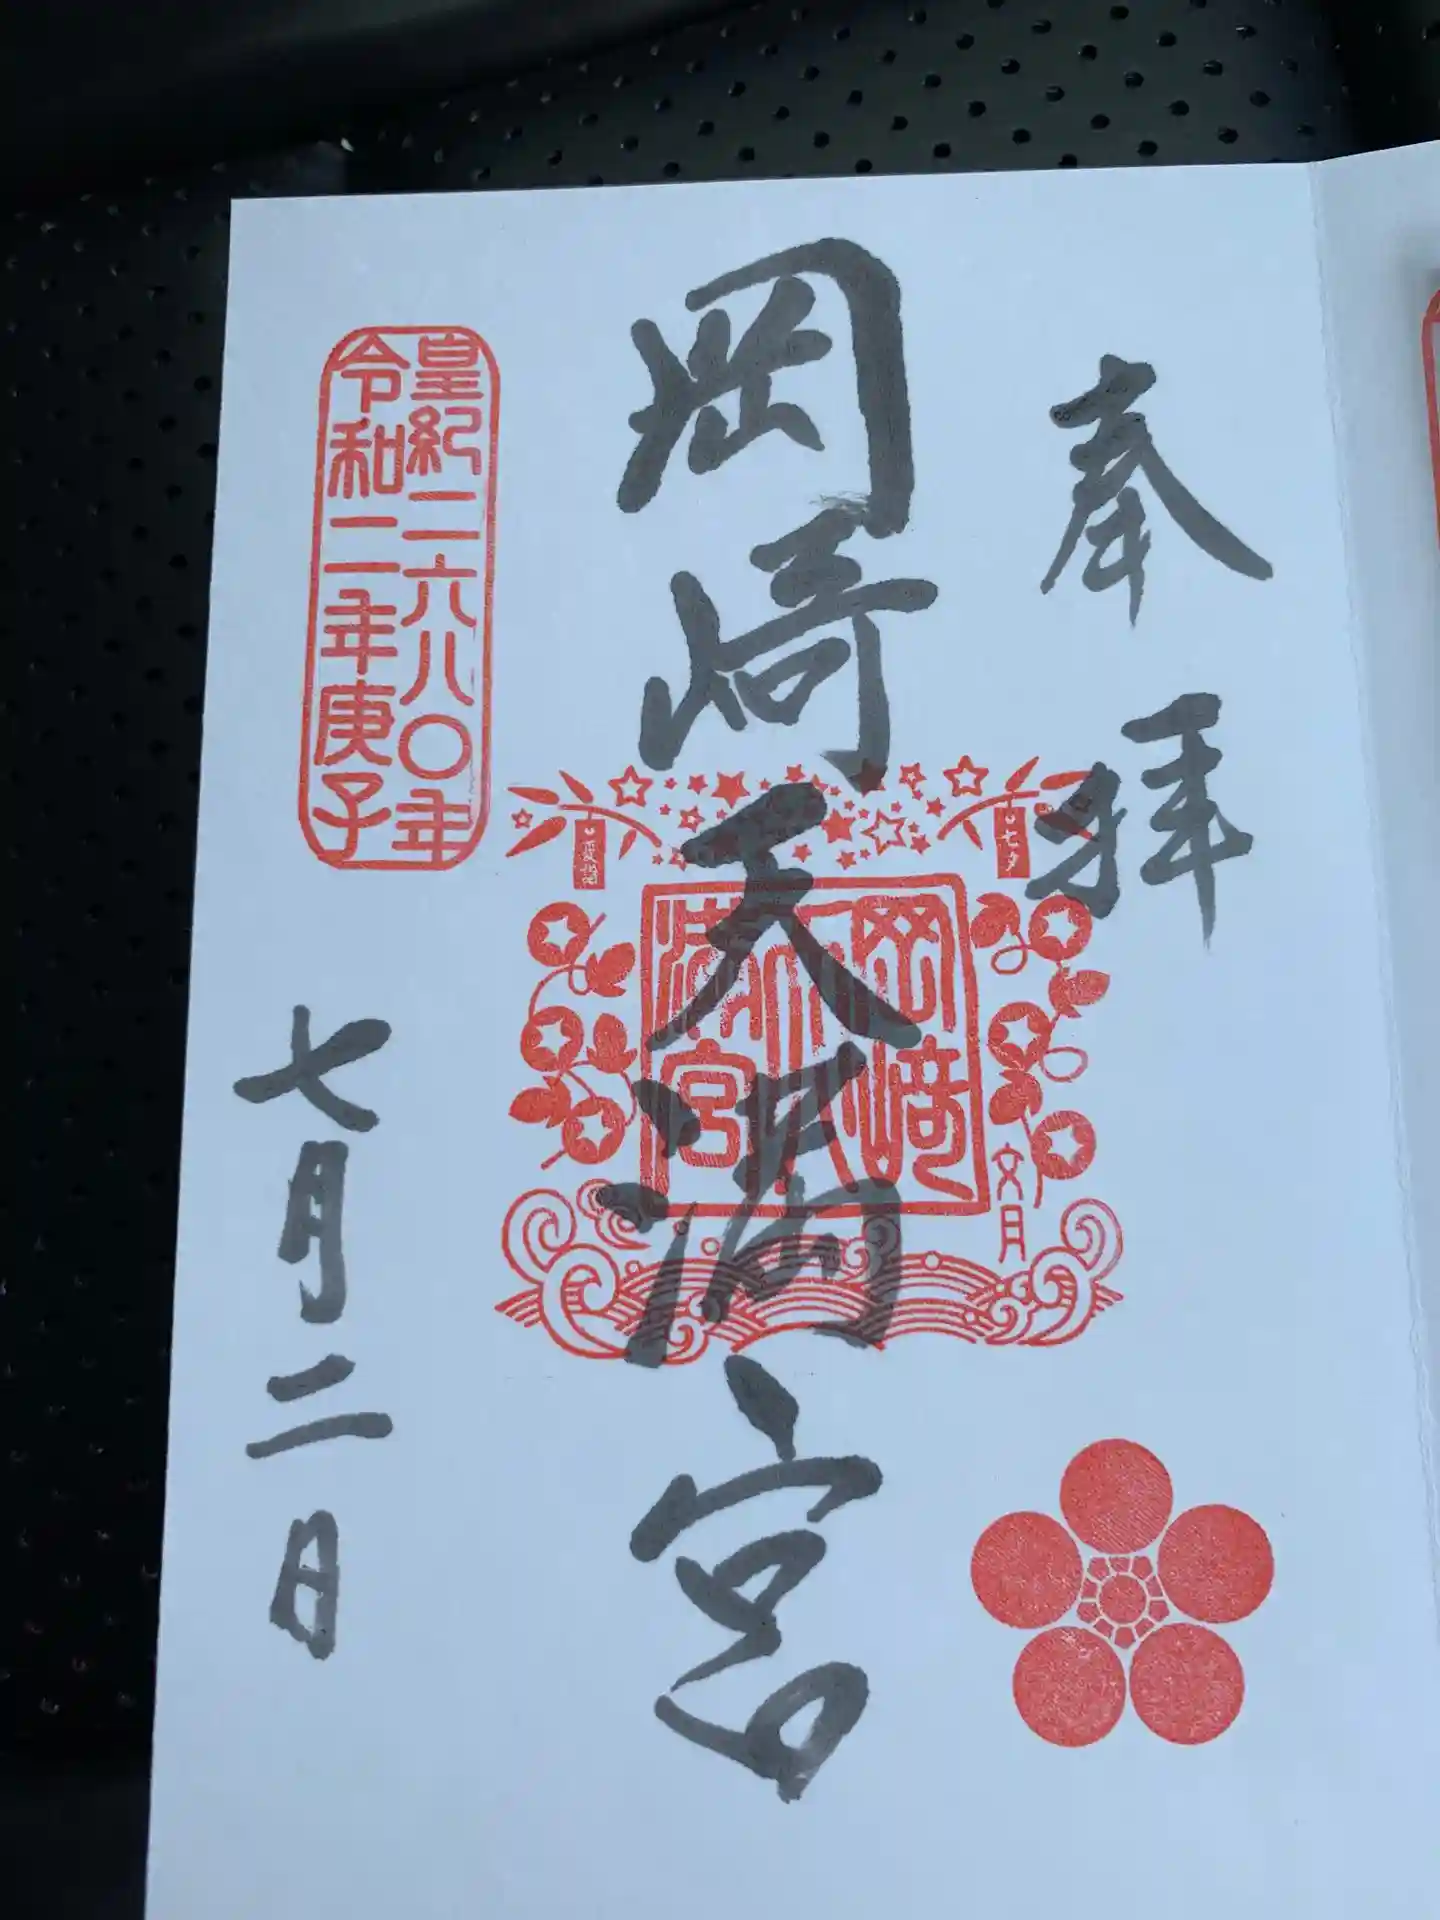 奉拝
岡崎天満宮
七夕
夏詣
岡﨑
天
満宮
文月
皇紀二六八〇年
令和二年庚子
七月二日